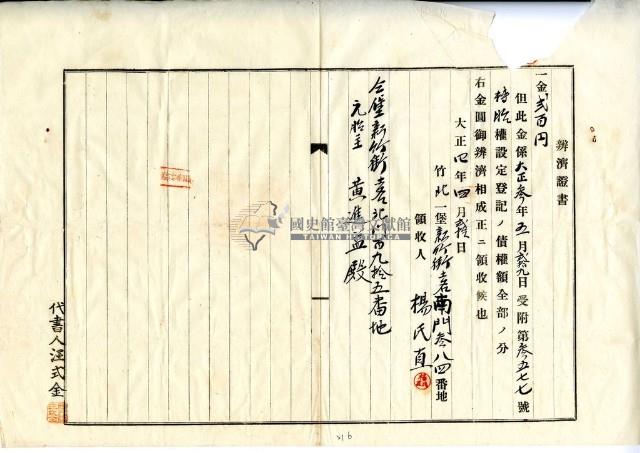 辨濟證書
一金貳百円
但此金係大正參年五月貳拾九日受附第參五七七號
特胎權設定登記ノ債權額全部ノ分
右金圓御辨濟相成正ニ領收候也
大正四年四月 日
竹北一堡新竹街土名南門參八四番地
領收人 楊氏直
仝堡新竹街土名北門百九拾五番地
元胎主 黃 殿
代書人汪式金
國史館臺灣文獻館
TAIWAN HISTORICA
916